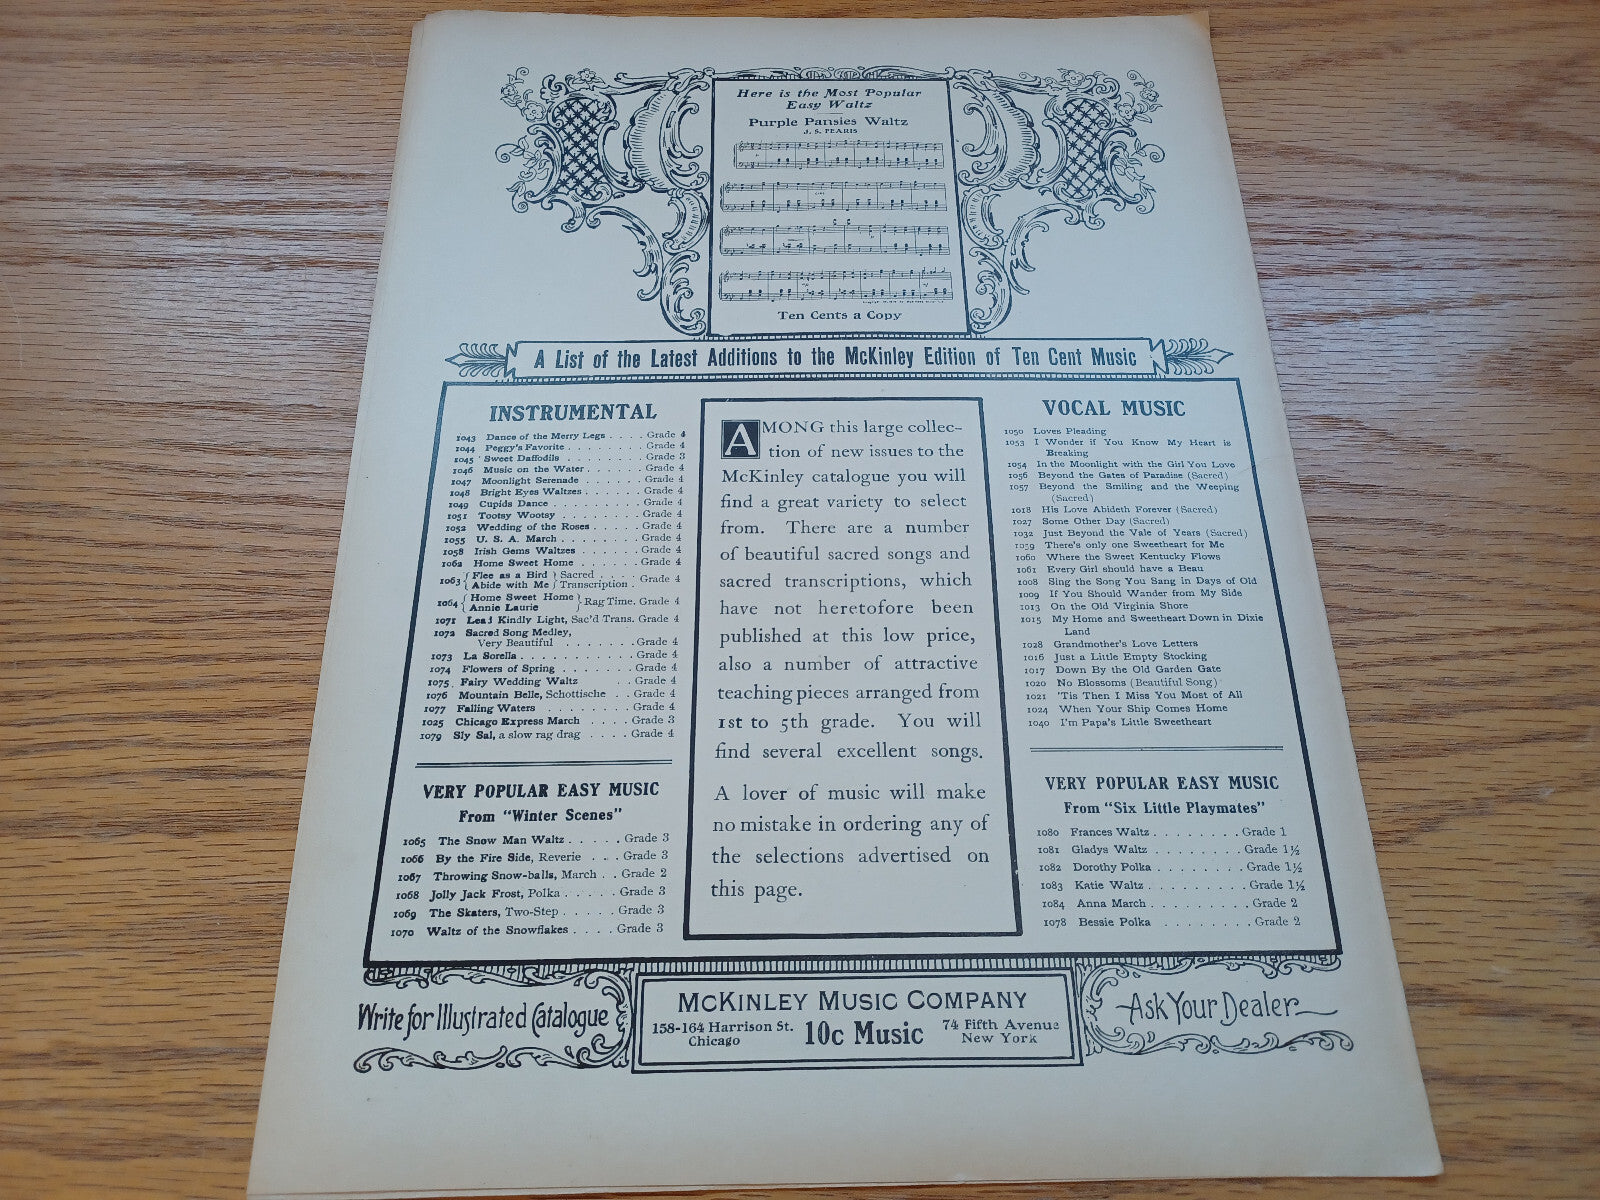 Here is the Most Popular
Easy Waltz
Purple Pansies Waltz
J. S. PEARIS
Ten Cents a Copy
A List of the Latest Additions to the McKinley Edition of Ten Cent Music
INSTRUMENTAL
1043 Dance of the Merry Legs . . . . Grade 4
1044 Peggy's Favorite . . . . . . . . Grade 4
1045 Sweet Daffodils . . . . . . . . Grade 3
1046 Music on the Water . . . . . . Grade 4
1047 Moonlight Serenade . . . . . . Grade 4
1048 Bright Eyes Waltzes . . . . . . Grade 4
1049 Cupids Dance . . . . . . . . . Grade 4
1051 Tootsy Wootsy . . . . . . . . Grade 4
1052 Wedding of the Roses . . . . . Grade 4
1055 U. S. A. March . . . . . . . . Grade 4
1058 Irish Gems Waltzes . . . . . . Grade 4
1062 Home Sweet Home . . . . . . Grade 4
1063 { Flee as a Bird } Sacred . . . .
{ Abide with Me } Transcription . Grade 4
1064 { Home Sweet Home
{ Annie Laurie } Rag Time. Grade 4
1071 Lead Kindly Light, Sac'd Trans. Grade 4
1072 Sacred Song Medley,
Very Beautiful . . . . . . . Grade 4
1073 La Sorella . . . . . . . . . . . Grade 4
1074 Flowers of Spring . . . . . . . Grade 4
1075 Fairy Wedding Waltz . . Grade 4
1076 Mountain Belle, Schottische . . Grade 4
1077 Falling Waters . . . . . . . . Grade 4
1025 Chicago Express March . . . . Grade 3
1079 Sly Sal, a slow rag drag . . . . Grade 4
VERY POPULAR EASY MUSIC
From "Winter Scenes"
1065 The Snow Man Waltz . . . . . Grade 3
1066 By the Fire Side, Reverie . . . Grade 3
1067 Throwing Snow-balls, March . . Grade 2
1068 Jolly Jack Frost, Polka . . . . . Grade 3
1069 The Skaters, Two-Step . . . . . Grade 3
1070 Waltz of the Snowflakes . . . . Grade 3
AMONG this large collec-
tion of new issues to the
McKinley catalogue you will
find a great variety to select
from. There are a number
of beautiful sacred songs and
sacred transcriptions, which
have not heretofore been
published at this low price,
also a number of attractive
teaching pieces arranged from
1st to 5th grade. You will
find several excellent songs.
A lover of music will make
no mistake in ordering any of
the selections advertised on
this page.
VOCAL MUSIC
1050 Loves Pleading
1053 I Wonder if You Know My Heart is
Breaking
1054 In the Moonlight with the Girl You Love
1056 Beyond the Gates of Paradise (Sacred)
1057 Beyond the Smiling and the Weeping
(Sacred)
1018 His Love Abideth Forever (Sacred)
1027 Some Other Day (Sacred)
1032 Just Beyond the Vale of Years (Sacred)
1059 There's only one Sweetheart for Me
1060 Where the Sweet Kentucky Flows
1061 Every Girl should have a Beau
1008 Sing the Song You Sang in Days of Old
1009 If You Should Wander from My Side
1013 On the Old Virginia Shore
1015 My Home and Sweetheart Down in Dixie
Land
1028 Grandmother's Love Letters
1016 Just a Little Empty Stocking
1017 Down By the Old Garden Gate
1020 No Blossoms (Beautiful Song)
1021 'Tis Then I Miss You Most of All
1024 When Your Ship Comes Home
1040 I'm Papa's Little Sweetheart
VERY POPULAR EASY MUSIC
From "Six Little Playmates"
1080 Frances Waltz . . . . . . . . Grade 1
1081 Gladys Waltz . . . . . . . . Grade 1½
1082 Dorothy Polka . . . . . . . . Grade 1½
1083 Katie Waltz . . . . . . . . . Grade 1½
1084 Anna March . . . . . . . . . Grade 2
1078 Bessie Polka . . . . . . . . Grade 2
Write for Illustrated Catalogue
MCKINLEY MUSIC COMPANY
158-164 Harrison St.
Chicago
10c Music
74 Fifth Avenue
New York
Ask Your Dealer